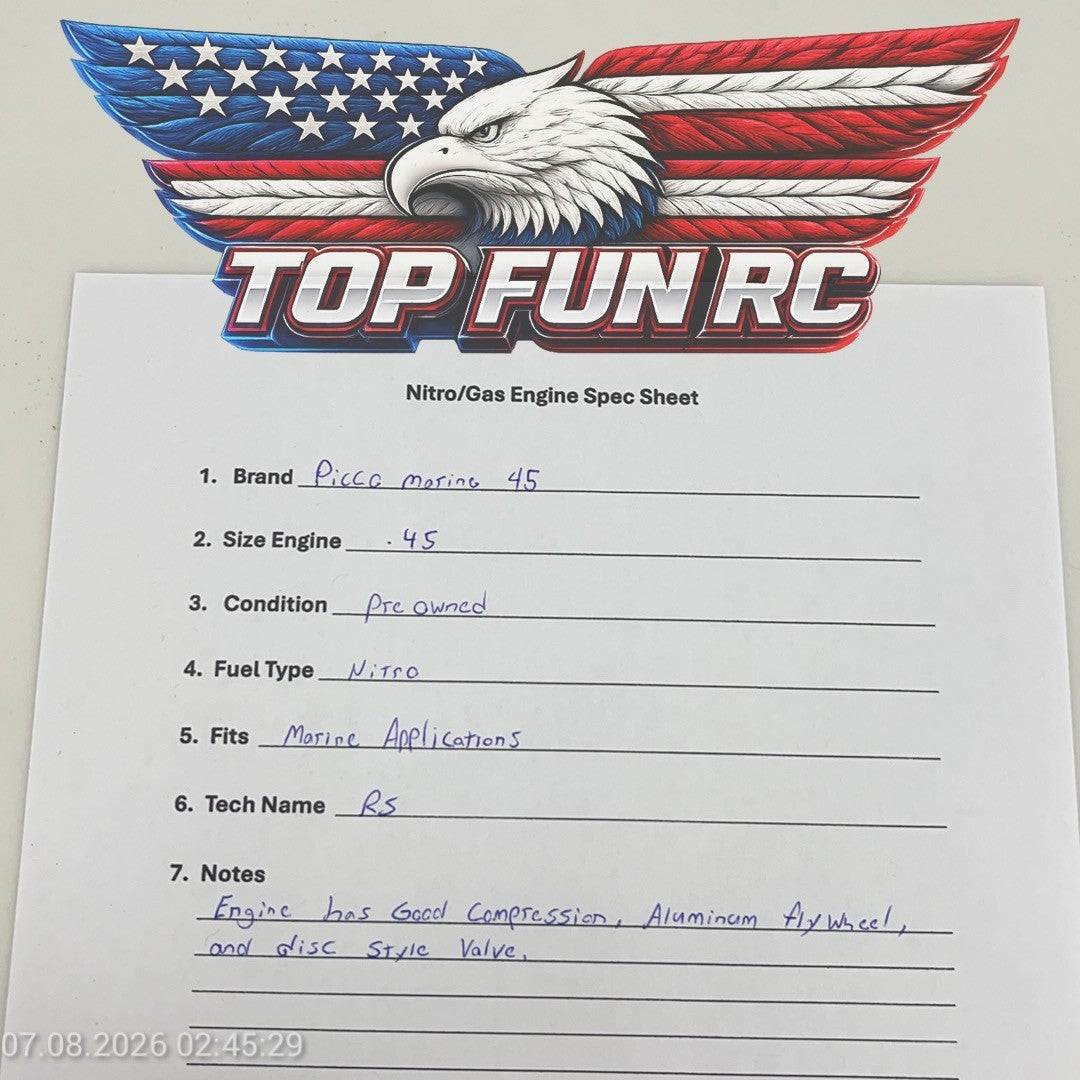 TOP FUN RC
Nitro/Gas Engine Spec Sheet
1. Brand Picco marine 45
2. Size Engine .45
3. Condition Pre owned
4. Fuel Type Nitro
5. Fits Marine Applications
6. Tech Name RS
7. Notes
Engine has Good Compression, Aluminum flywheel,
and disc style Valve.
07.08.2026 02:45:29